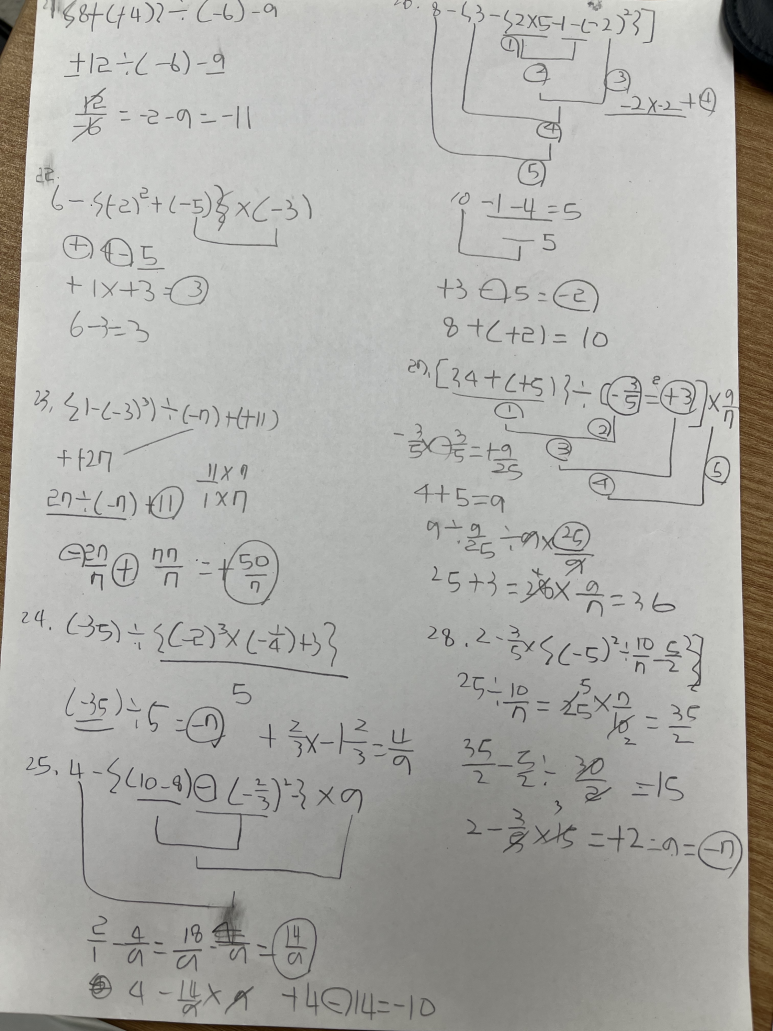 {8+(+4)}÷(-6)-9
+12÷(-6)-9
12/-6 = -2-9 = -11
22.
6-{(-2)²+(-5)}×(-3)
+4-5
+1×+3=3
6-3=3
23. {1-(-3)³)÷(-7)+(+11)
++27
27÷(-7)+11
11×7
1×7
-27/7 + 77/7 = +50/7
24. (-35)÷{(-2)³×(-1/4)+3}
5
(-35)÷5=-7
+2/3×-1 2/3=4/9
25. 4-{(10-8)-(-2/3)²}×9
2/1-4/9=18/9-4/9=14/9
4-14/9×9 +4-14=-10
26. 8-{3-{2×5-1-(-2)²}]
① ② ③
-2×-2+4
④
⑤
10-1-4=5
5
+3-5=-2
8+(+2)=10
27. [{4+(+5)}÷(-3/5)²+3]×9/7
① ② ③ ④ ⑤
-3/5×-3/5=+9/25
4+5=9
9÷9/25÷9×25/9
25+3=28×9/7=36
28. 2-3/5×{(-5)²÷10/7-5/2}]
25÷10/7=25×7/10=35/2
35/2-5/2÷30/2=15
2-3/5×15=+2-9=-7